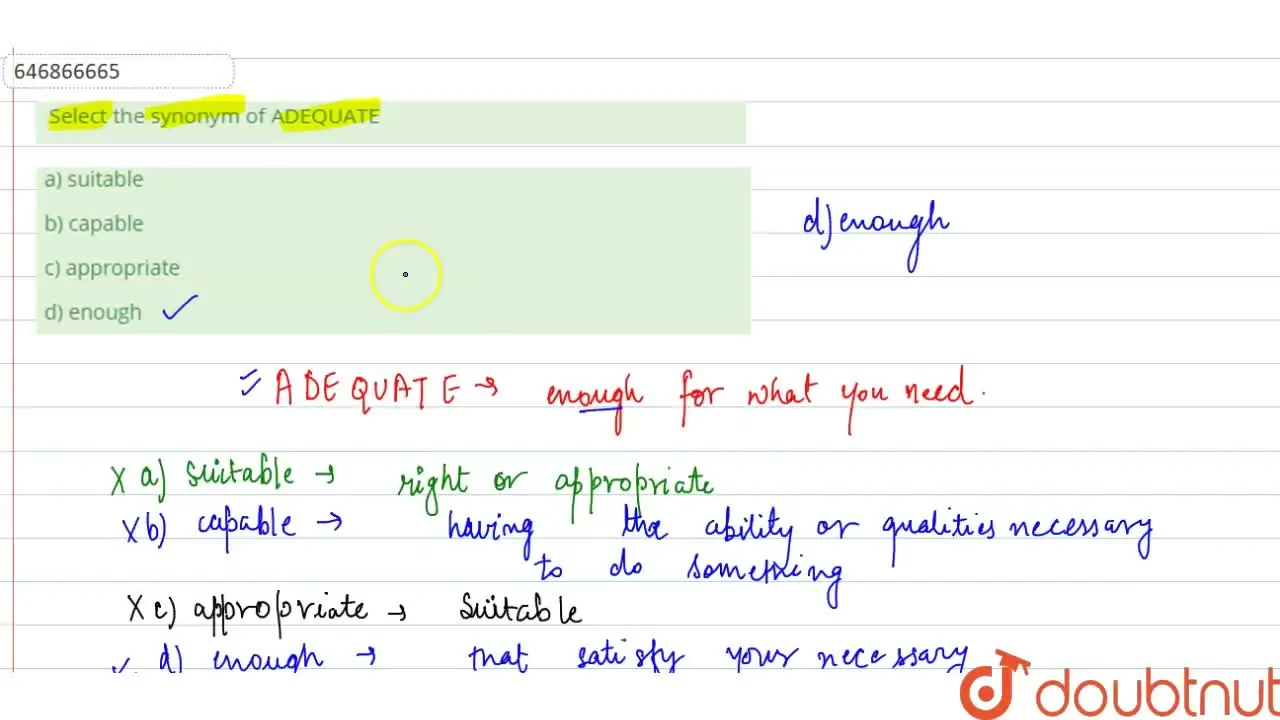 646866665
Select the synonym of ADEQUATE
a) suitable
b) capable
c) appropriate
d) enough
d) enough
ADEQUATE → enough for what you need.
X a) suitable → right or appropriate
X b) capable → having the ability or qualities necessary
to do something
X c) appropriate → suitable
✓ d) enough → that satisfy your necessary
doubtnut